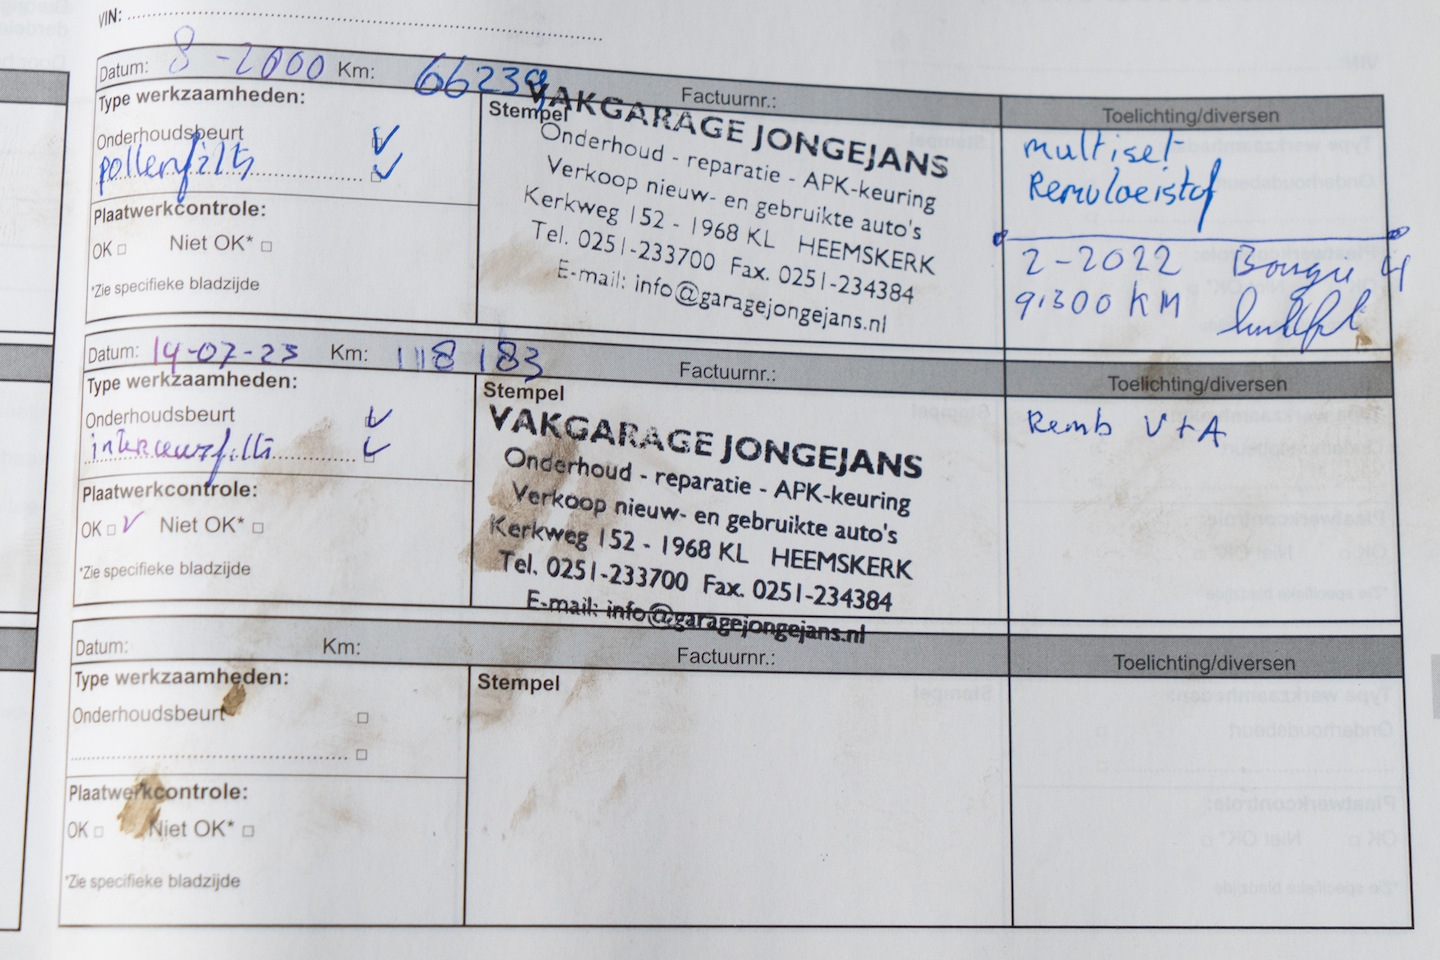 VIN:
Datum: 8-2000 Km: 66239 Factuurnr.:
Type werkzaamheden:
Onderhoudsbeurt
pollenfilts
Plaatwerkcontrole:
OK Niet OK*
*Zie specifieke bladzijde
Stempel
VAKGARAGE JONGEJANS
Onderhoud - reparatie - APK-keuring
Verkoop nieuw- en gebruikte auto's
Kerkweg 152 - 1968 KL HEEMSKERK
Tel. 0251-233700 Fax. 0251-234384
E-mail: info@garagejongejans.nl
Toelichting/diversen
multiset
Remvloeistof
2-2022 Bougie 4
91300 KM
Datum: 14-07-23 Km: 118183 Factuurnr.:
Type werkzaamheden:
Onderhoudsbeurt
interieurfilts
Plaatwerkcontrole:
OK Niet OK*
*Zie specifieke bladzijde
Stempel
VAKGARAGE JONGEJANS
Onderhoud - reparatie - APK-keuring
Verkoop nieuw- en gebruikte auto's
Kerkweg 152 - 1968 KL HEEMSKERK
Tel. 0251-233700 Fax. 0251-234384
E-mail: info@garagejongejans.nl
Toelichting/diversen
Remb V+A
Datum: Km: Factuurnr.:
Type werkzaamheden:
Onderhoudsbeurt
Plaatwerkcontrole:
OK Niet OK*
*Zie specifieke bladzijde
Stempel
Toelichting/diversen